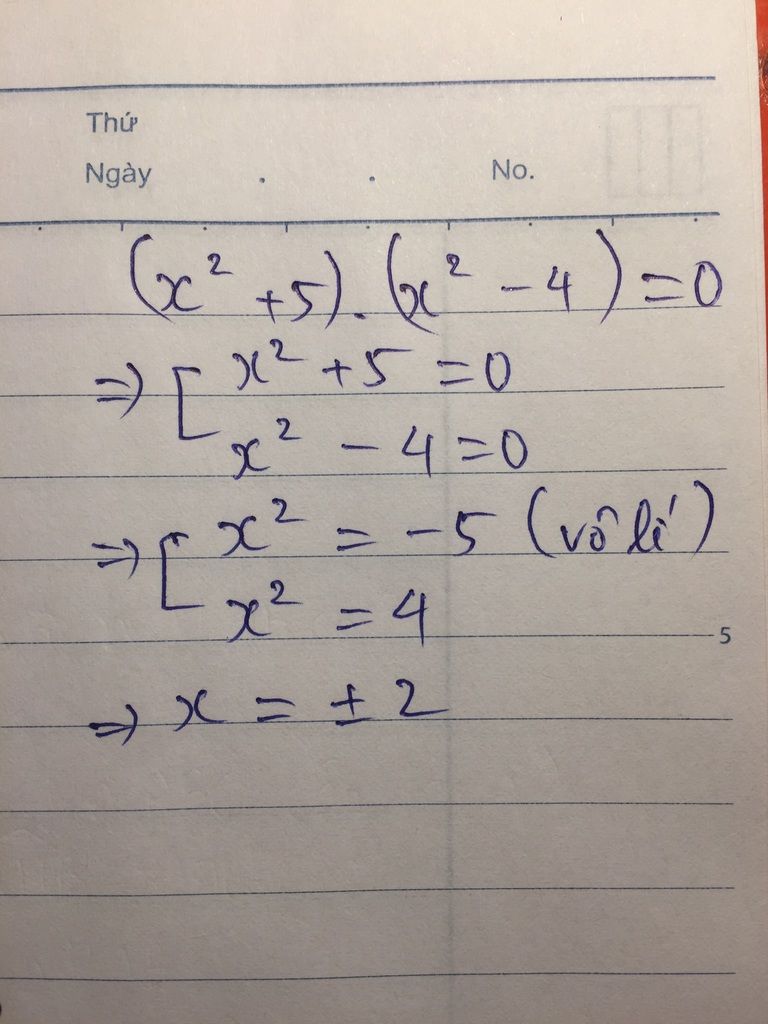 Thứ
Ngày . . No.
(x² +5).(x² -4)=0
⇒ [ x² +5 =0
x² - 4=0
⇒ [ x² = -5 (vô lí)
x² = 4
5
⇒ x = ± 2